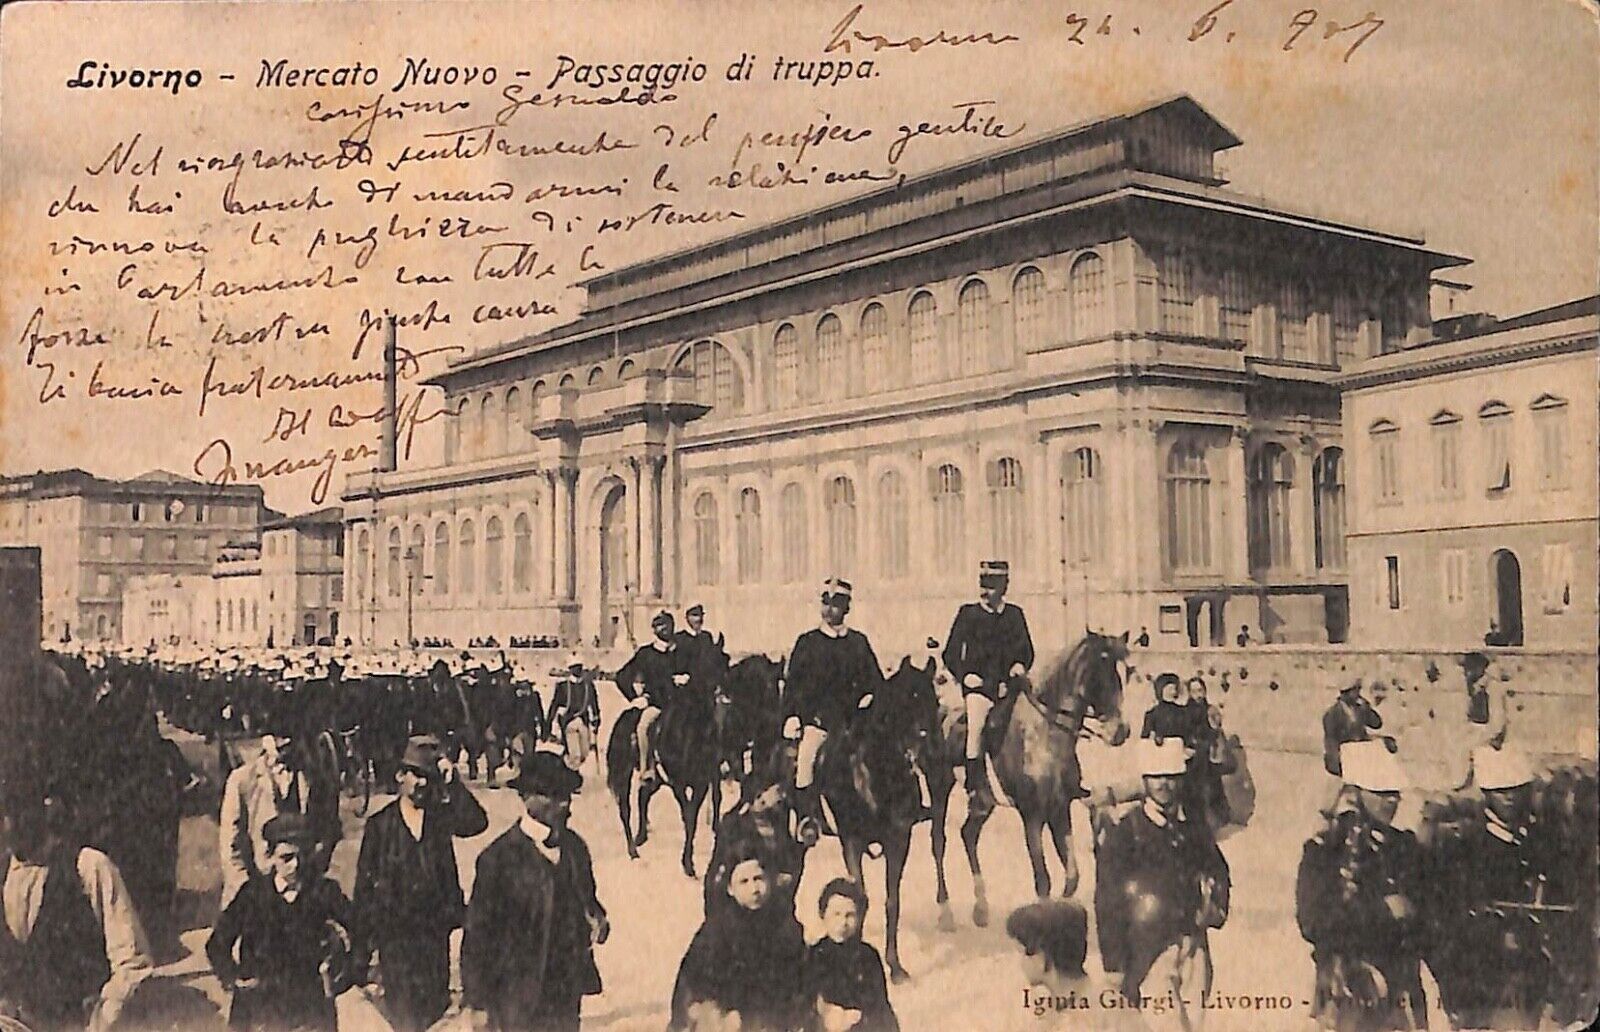 Livorno 24. 6. 907
Livorno - Mercato Nuovo - Passaggio di truppa.
Carissimo Gesualdo
Nel ringraziarti sentitamente del pensiero gentile
che hai avuto di mandarmi la relazione,
rinnovo la preghiera di sostenere
in Parlamento con tutte le
forze la nostra giusta causa
Ti bacia fraternamente
Iginia Giurgi - Livorno -